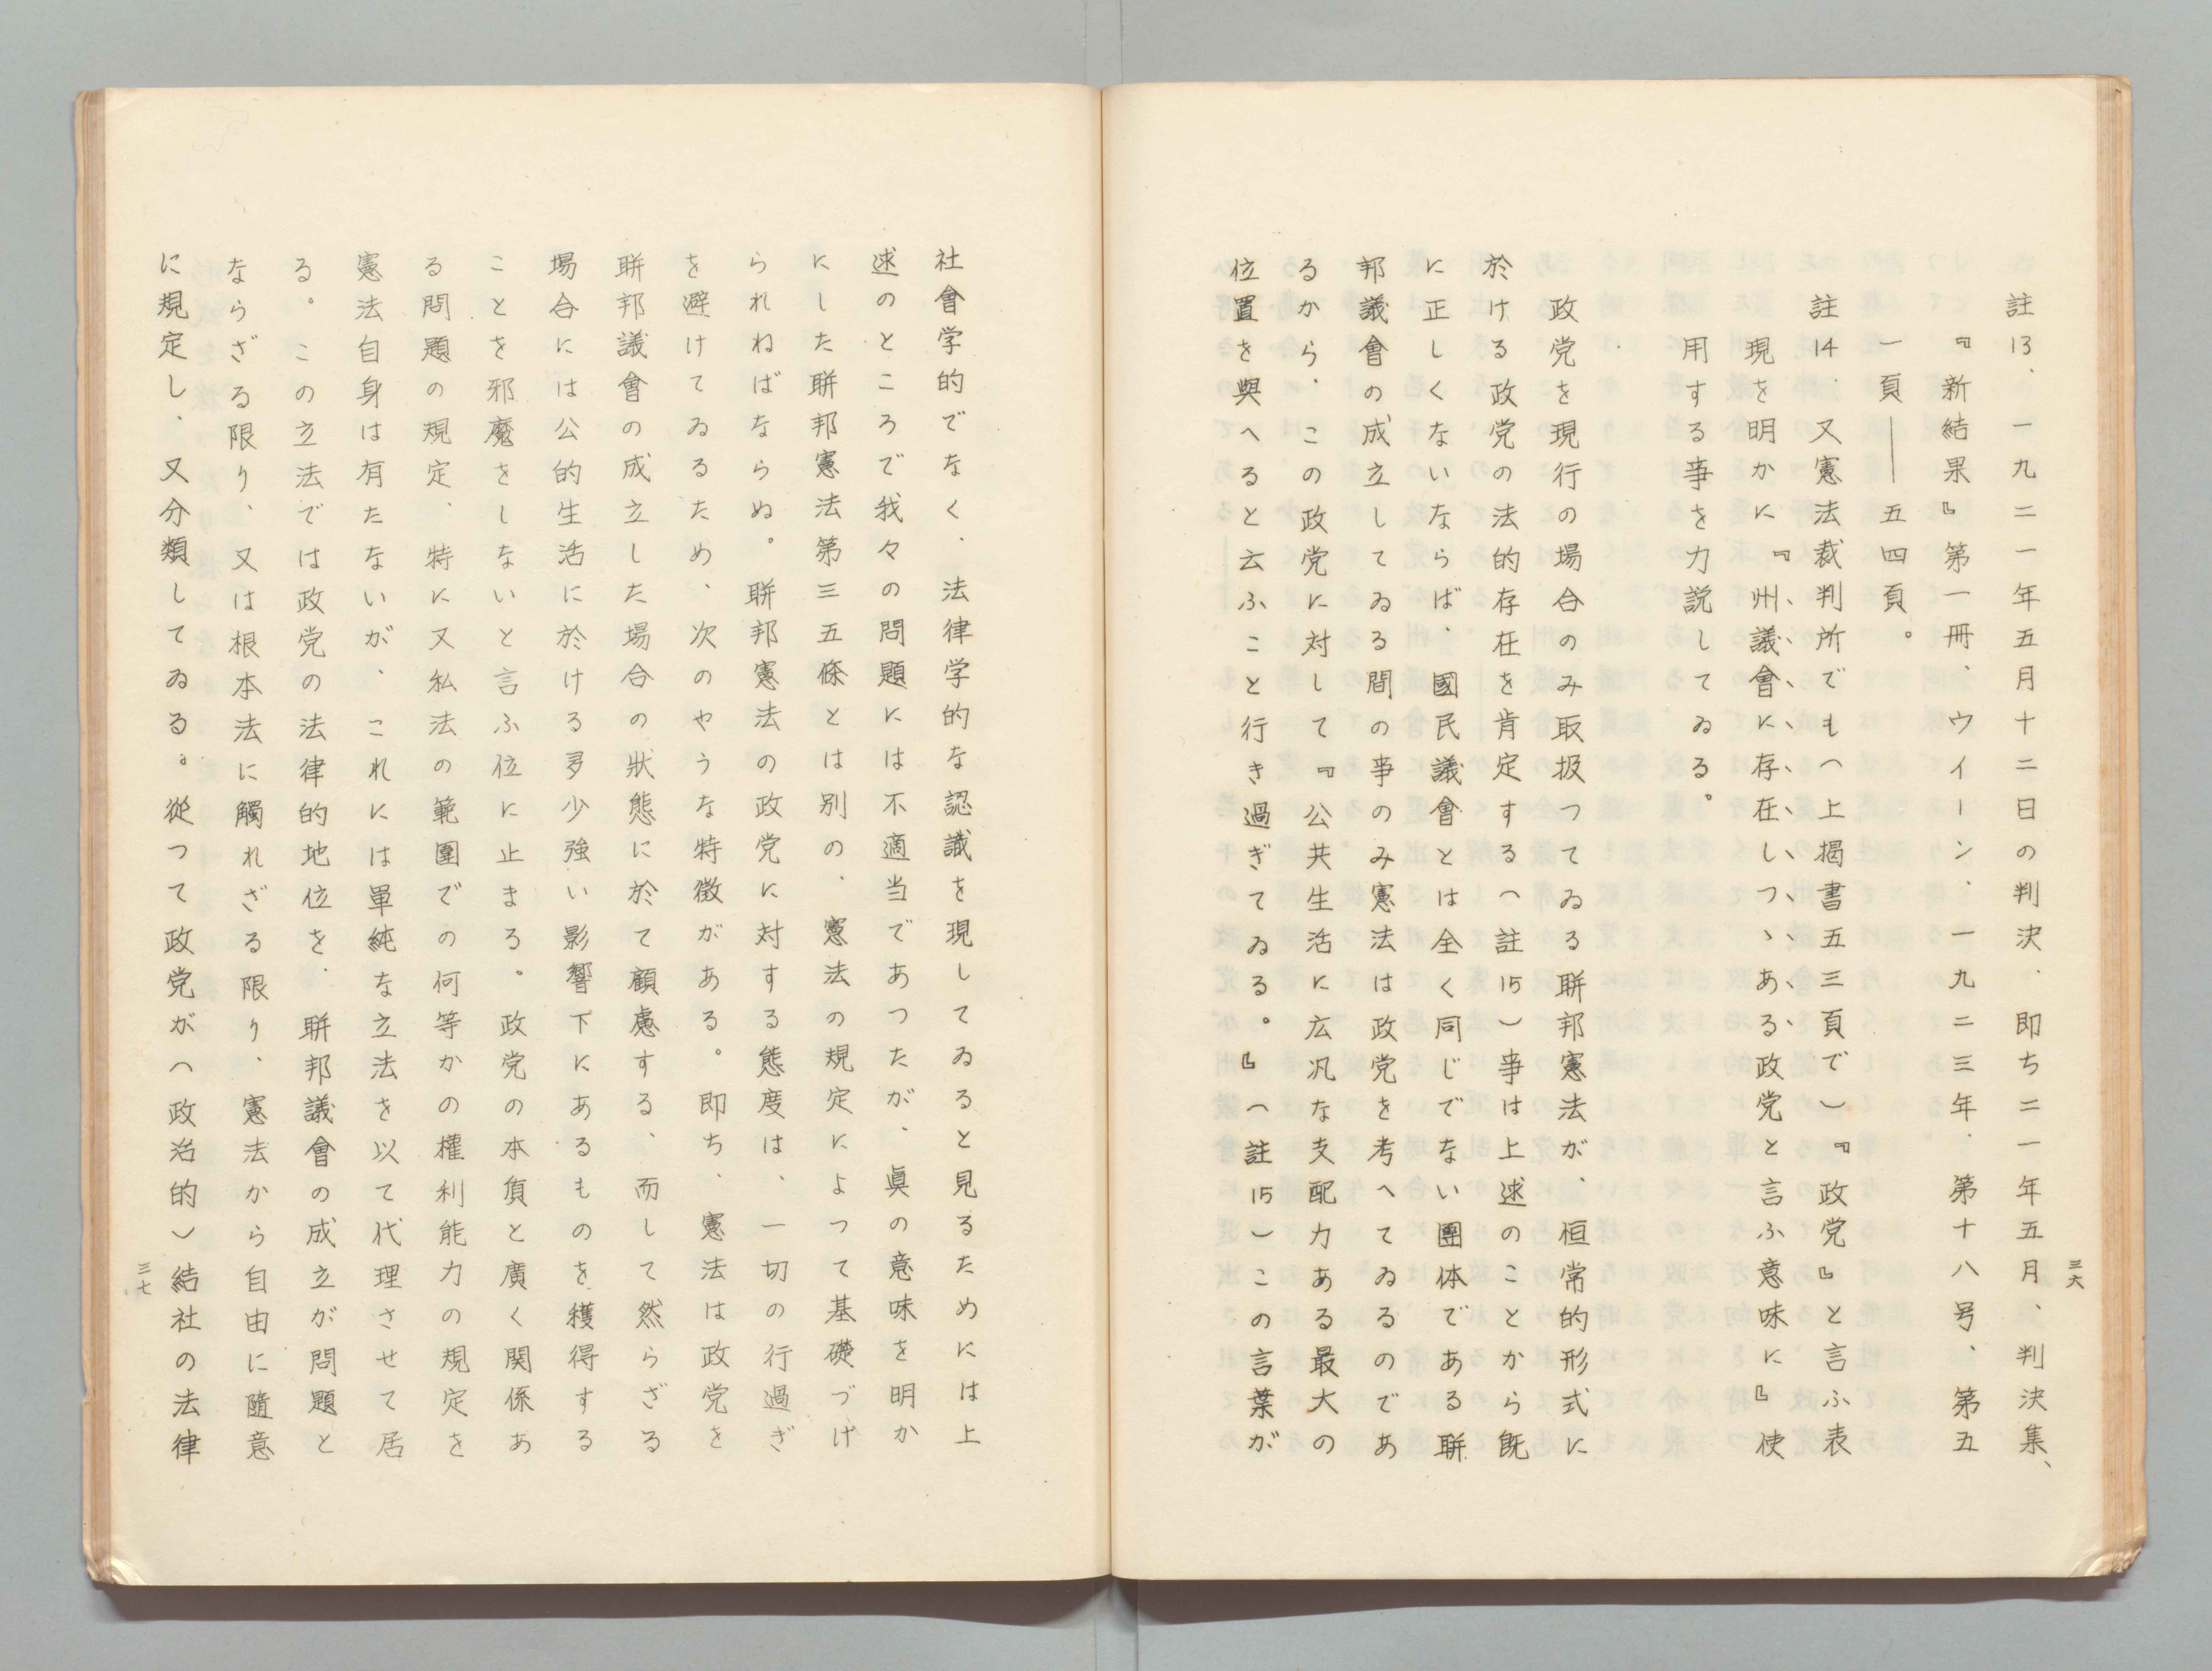 三六
註13、一九二一年五月十二日の判決、即ち二一年五月、判決集、
『新結果』第一冊、ウイーン、一九二三年、第十八号、第五
一頁――五四頁。
註14、又憲法裁判所でも（上掲書五三頁で）『政党』と言ふ表
現を明かに『州議會に存在しつゝある政党と言ふ意味に』使
用する事を力説してゐる。
政党を現行の場合のみ取扱つてゐる聯邦憲法が、恒常的形式に
於ける政党の法的存在を肯定する（註15）事は上述のことから既
に正しくないならば、國民議會とは全く同じでない團体である聯
邦議會の成立してゐる間の事のみ憲法は政党を考へてゐるのであ
るから、この政党に対して『公共生活に広汎な支配力ある最大の
位置を與へると云ふこと行き過ぎてゐる。』（註15）この言葉が
社會学的でなく、法律学的な認識を現してゐると見るためには上
述のところで我々の問題には不適当であつたが、眞の意味を明か
にした聯邦憲法第三五條とは別の、憲法の規定によつて基礎づけ
られねばならぬ。聯邦憲法の政党に対する態度は、一切の行過ぎ
を避けてゐるため、次のやうな特徴がある。即ち、憲法は政党を
聯邦議會の成立した場合の狀態に於て顧慮する、而して然らざる
場合には公的生活に於ける多少強い影響下にあるものを獲得する
ことを邪魔をしないと言ふ位に止まる。政党の本質と廣く関係あ
る問題の規定、特に又私法の範圍での何等かの權利能力の規定を
憲法自身は有たないが、これには単純な立法を以て代理させて居
る。この立法では政党の法律的地位を、聯邦議會の成立が問題と
ならざる限り、又は根本法に觸れざる限り、憲法から自由に隨意
に規定し、又分類してゐる。從つて政党が（政治的）結社の法律
三七